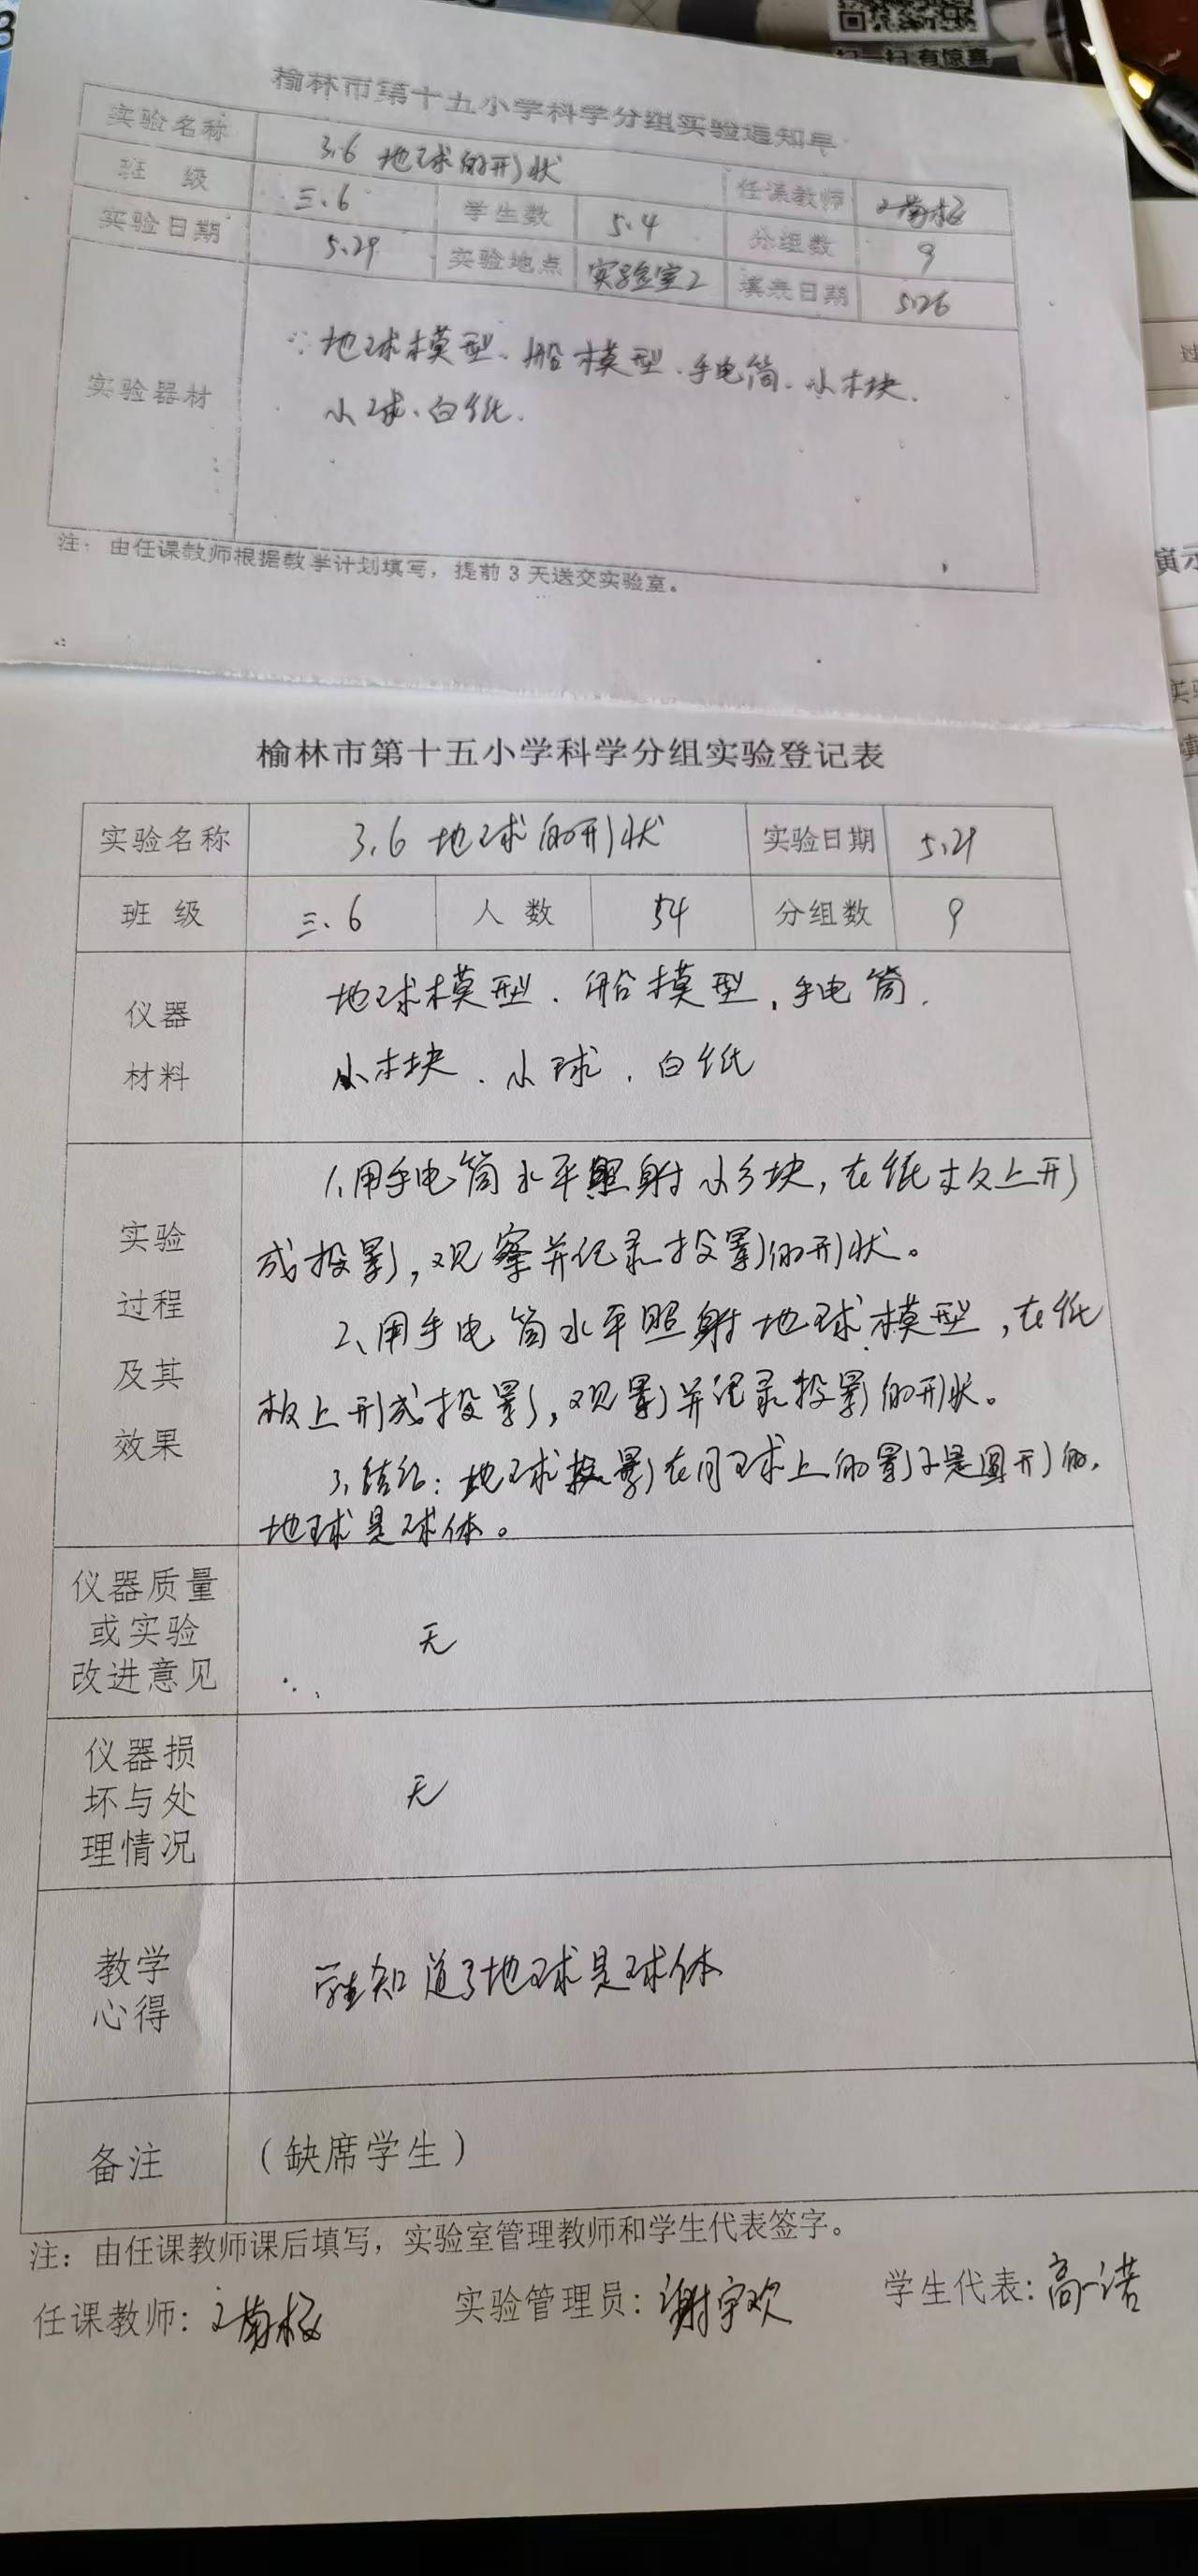 扫一扫 有惊喜
榆林市第十五小学科学分组实验通知单
实验名称 3.6 地球的形状 任课教师
班 级 三.6 学生数 54 分组数 9
实验日期 5.29 实验地点 实验室2 填表日期 5.26
实验器材
地球模型、船模型、手电筒、小木块、
小球、白纸.
注：由任课教师根据教学计划填写，提前 3 天送交实验室。
榆林市第十五小学科学分组实验登记表
实验名称 3.6 地球的形状 实验日期 5.29
班 级 三.6 人 数 54 分组数 9
仪器
材料
地球模型、船模型、手电筒、
小木块、小球、白纸
实验
过程
及其
效果
1、用手电筒水平照射小方块，在纸板上形
成投影，观察并记录投影的形状。
2、用手电筒水平照射地球模型，在纸
板上形成投影，观影并记录投影的形状。
3、结论：地球投影在月球上的影子是圆形的，
地球是球体。
仪器质量
或实验
改进意见
无
仪器损
坏与处
理情况
无
教学
心得
学生知道了地球是球体
备注 （缺席学生）
注：由任课教师课后填写，实验室管理教师和学生代表签字。
任课教师: 实验管理员: 谢宇欢 学生代表: 高一诺